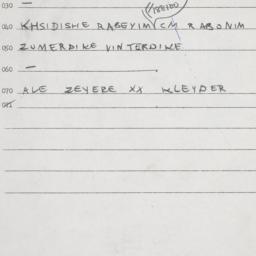 030 —
040 KHSIDISHE RABEYIM CM RABONIM
050 ZUMERDIKE VINTERDIKE
060 —
070 ALE ZEYERE XX KLEYDER
081